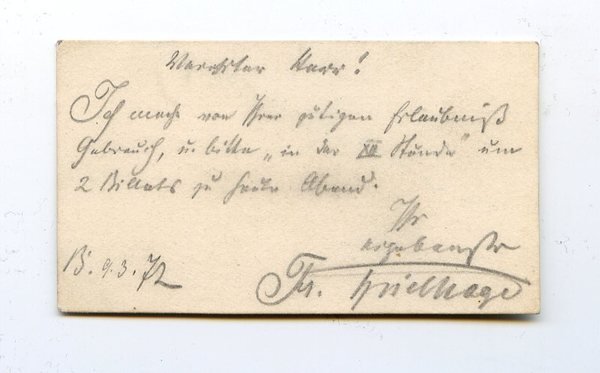 Verehrter Herr!
Ich mache von Ihrer gütigen Erlaubniß
Gebrauch, u. bitte „in der XII Stunde" um
2 Billets zu heute Abend.
Ihr
ergebenster
B. 9.3.72
Fr. Spielhage